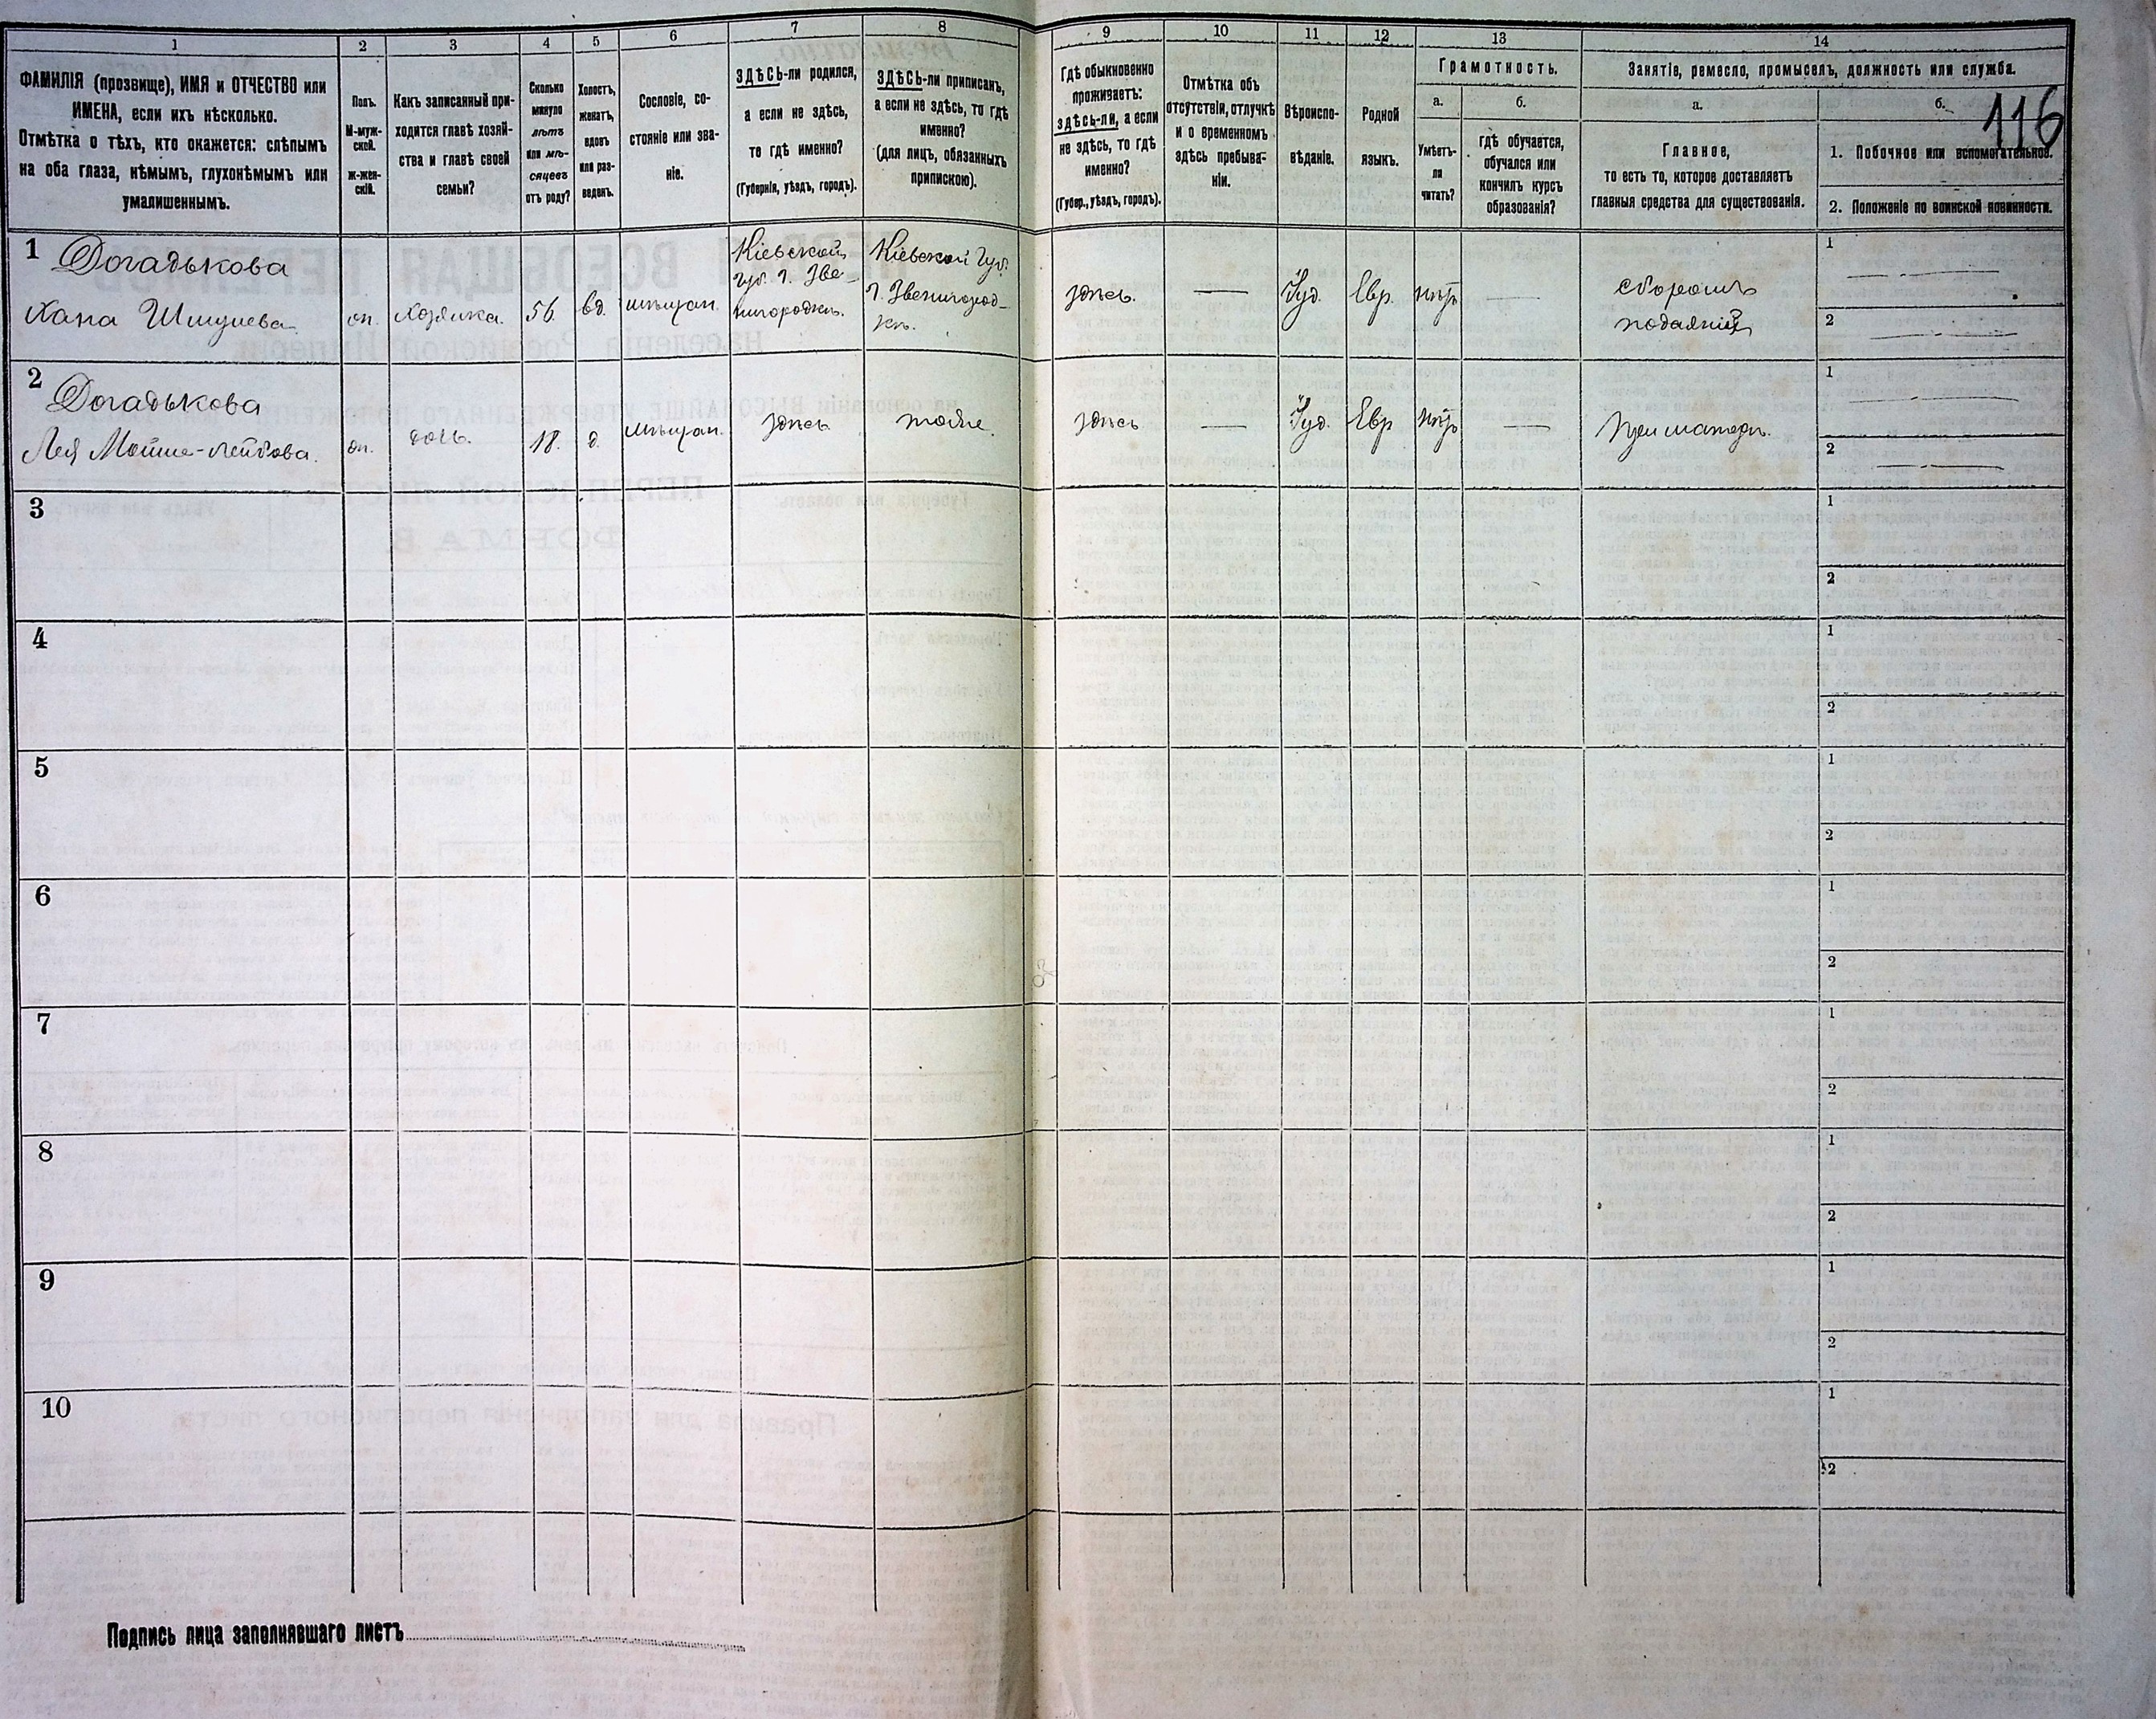 1
2
3
4
5
6
7
8
9
10
11
12
13
14
ФАМИЛІЯ (прозвище), ИМЯ и ОТЧЕСТВО или
ИМЕНА, если ихъ нѣсколько.
Отмѣтка о тѣхъ, кто окажется: слѣпымъ
на оба глаза, нѣмымъ, глухонѣмымъ или
умалишеннымъ.
Полъ.
М-муж-
ской.
ж-жен-
скій.
Какъ записанный при-
ходится главѣ хозяй-
ства и главѣ своей
семьи?
Сколько
минуло
лѣтъ
или мѣ-
сяцевъ
отъ роду?
Холостъ,
женатъ,
вдовъ
или раз-
веденъ.
Сословіе, со-
стояніе или зва-
ніе.
ЗДѢСЬ-ли родился,
а если не здѣсь,
то гдѣ именно?
(Губернія, уѣздъ, городъ).
ЗДѢСЬ-ли приписан,
а если не здѣсь, то гдѣ
именно?
(для лицъ, обязанныхъ
припискою).
Гдѣ обыкновенно
проживаетъ:
здѣсь-ли, а если
не здѣсь, то гдѣ
именно?
(Губер., уѣздъ, городъ).
Отмѣтка объ
отсутствіи, отлучкѣ
и о временномъ
здѣсь пребыва-
ніи.
Вѣроиспо-
вѣданіе.
Родной
языкъ.
Грамотность.
а.
б.
Умѣетъ-
ли
читать?
гдѣ обучается,
обучался или
кончилъ курсъ
образованія?
Занятіе, ремесло, промыселъ, должность или служба.
а.
б.
116
Главное,
то есть то, которое доставляетъ
главныя средства для существованія.
1. Побочное или вспомогательное.
2. Положеніе по воинской повинности.
1
Догадькова
Хана Шмулева
жп.
Хозяйка.
56
вд.
мѣщан.
Кіевской
губ. г. Зве-
нигородкѣ.
Кіевской Губ.
г. Звенигород-
кѣ.
здѣсь.
—
Іуд.
Евр.
нѣтъ
—
сборомъ
подаяній
1
2
2
Догадькова
Лея Мойше-Лейбова.
дочь.
18.
д.
мѣщан.
здѣсь
тоже.
здѣсь
—
Іуд.
Евр
нѣтъ
—
При матери.
1
2
3
1
2
4
1
2
5
1
2
6
1
2
7
1
2
8
1
2
9
1
2
10
1
2
Подпись лица заполнявшаго листъ